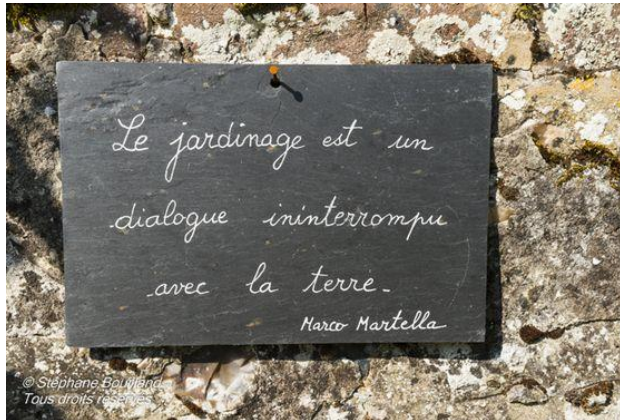 Le jardinage est un
dialogue ininterrompu
avec la terre.
Marco Martella
© Stéphane Bouilland
Tous droits réservés